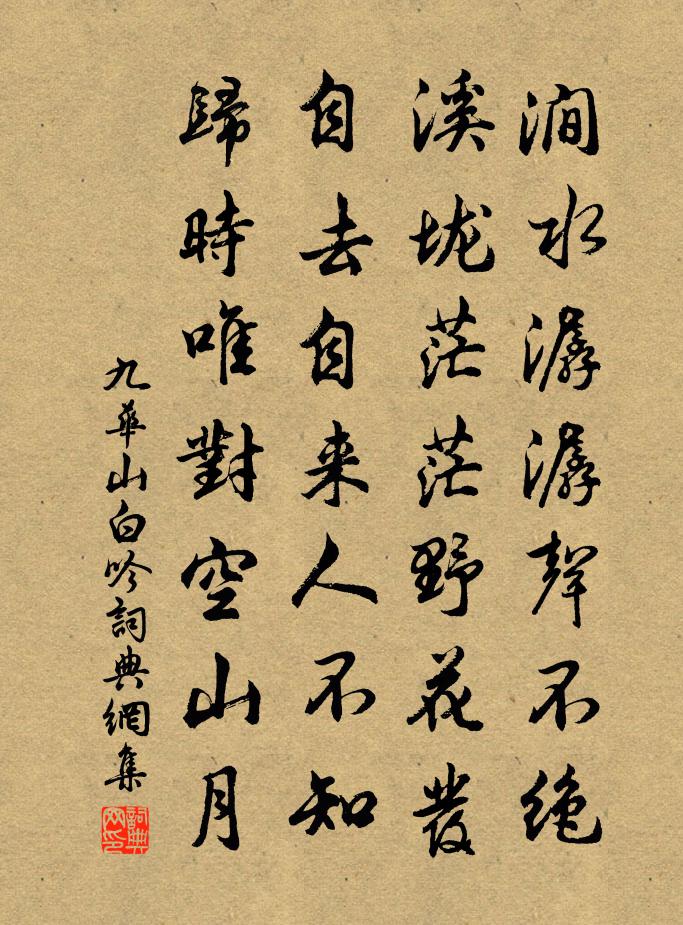 澗水潺潺聲不絶
溪垅茫茫野花發
自去自来人不知
歸時唯對空山月
九華山白吟詞典網集
詞典网印